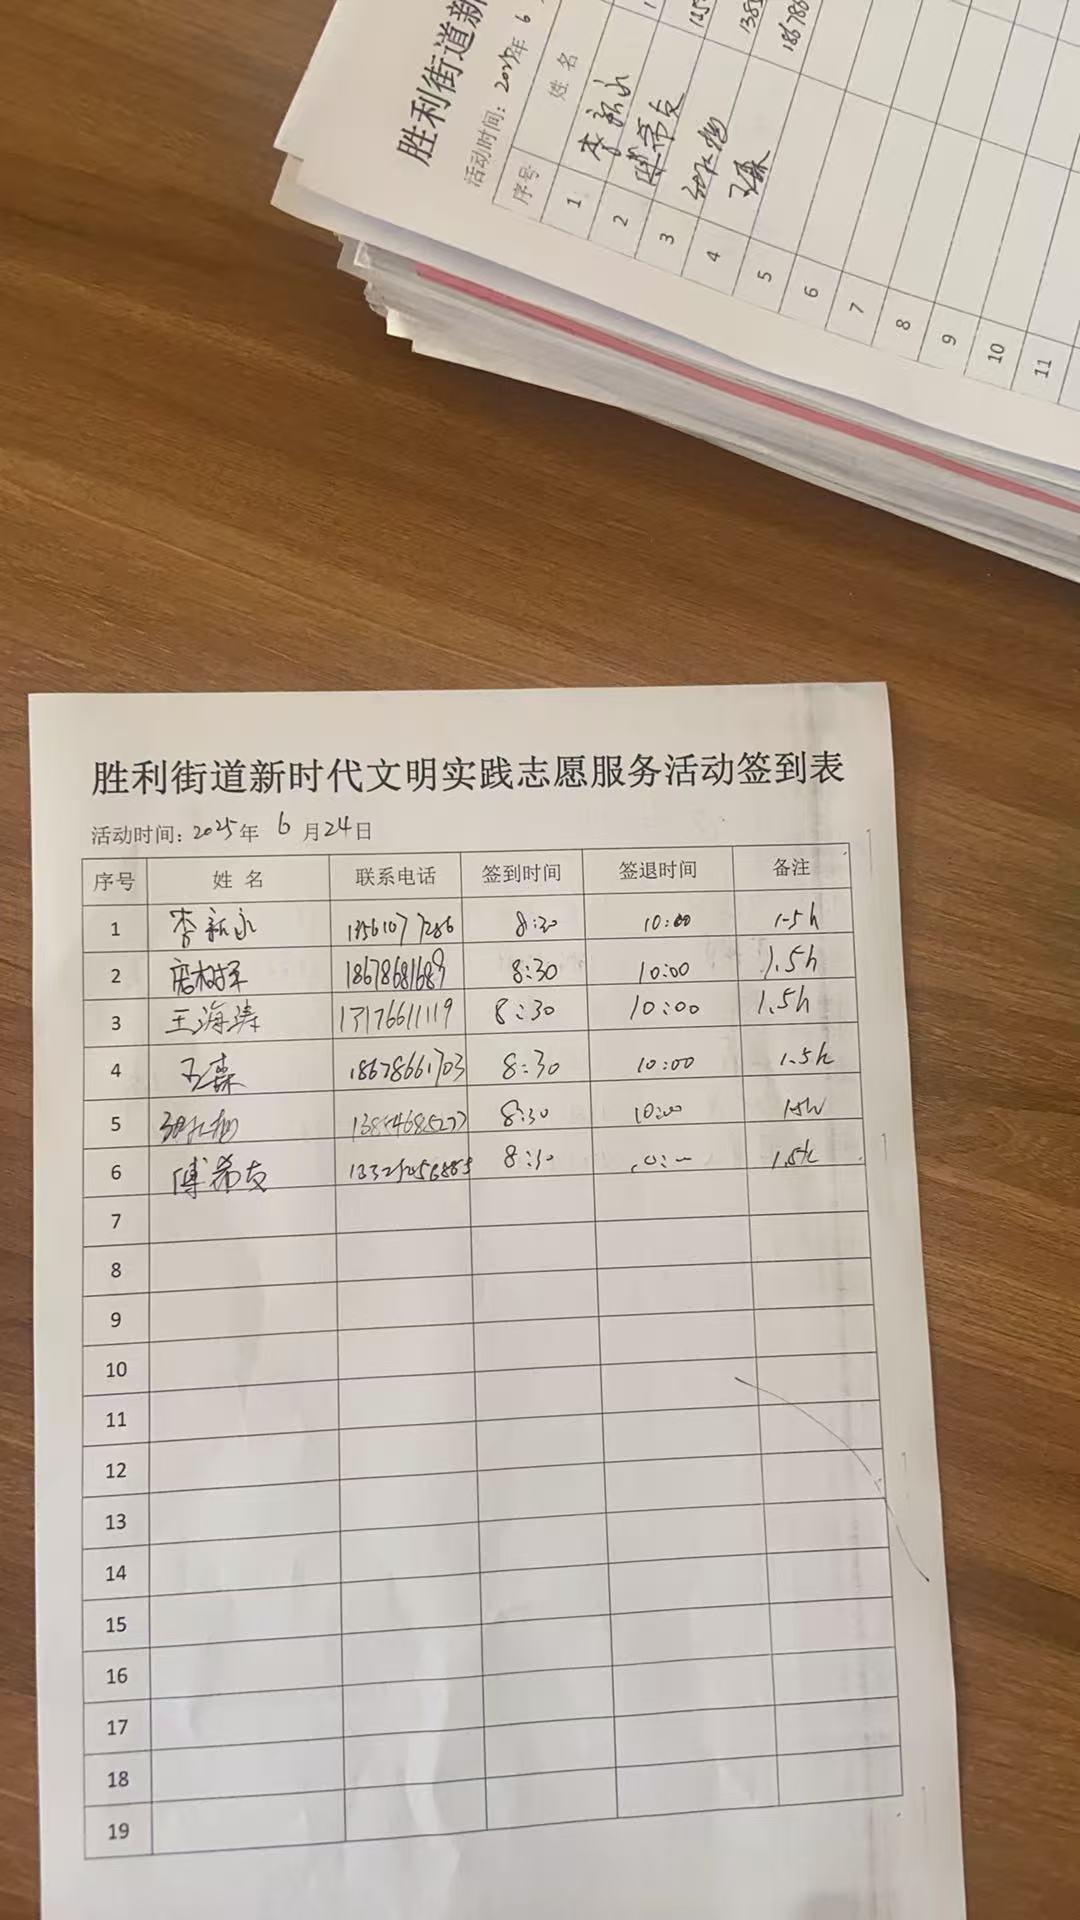 胜利街道新
活动时间：2025年 6
序号 姓 名
1 李新永
2 傅希友
3
4 王森
5
6
7
8
9
10
11
胜利街道新时代文明实践志愿服务活动签到表
活动时间：2025年 6 月24日
序号 姓 名 联系电话 签到时间 签退时间 备注
1 李新永 8:30 10:00 1.5h
2 18678681689 8:30 10:00 1.5h
3 王海涛 13176611119 8:30 10:00 1.5h
4 王森 18678661703 8:30 10:00 1.5h
5 13854685277 8:30 10:00 1.5h
6 傅希友 8:30 1.5h
7
8
9
10
11
12
13
14
15
16
17
18
19